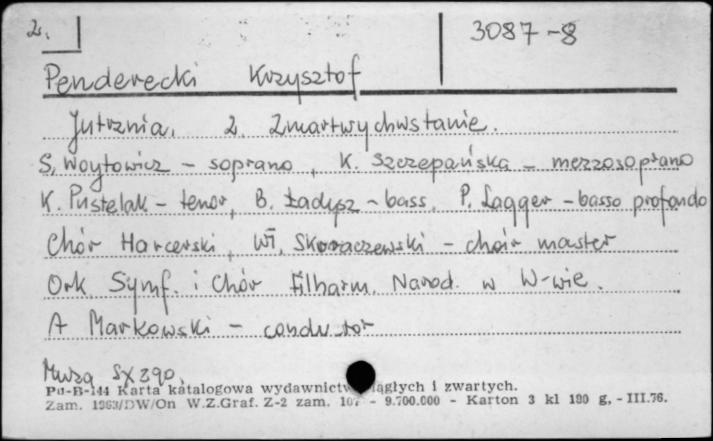 2. 3087-8
Penderecki Krzysztof
Jutrznia. 2. Zmartwychwstanie.
S. Woytowicz - soprano, K. Szczepańska - mezzosoprano
K. Pustelak - tenor, B. Ładysz - bass, P. Lagger - basso profondo
Chór Harcerski, Wł. Skoraczewski - choir master
Ork. Symf. i Chór Filharm. Narod. w W-wie.
A Markowski - conductor
Muza SX 290,
Pu-B-144 Karta katalogowa wydawnictw ciągłych i zwartych.
Zam. 1963/DW/On W.Z.Graf. Z-2 zam. 107 - 9.700.000 - Karton 3 kl 190 g, - III.76.